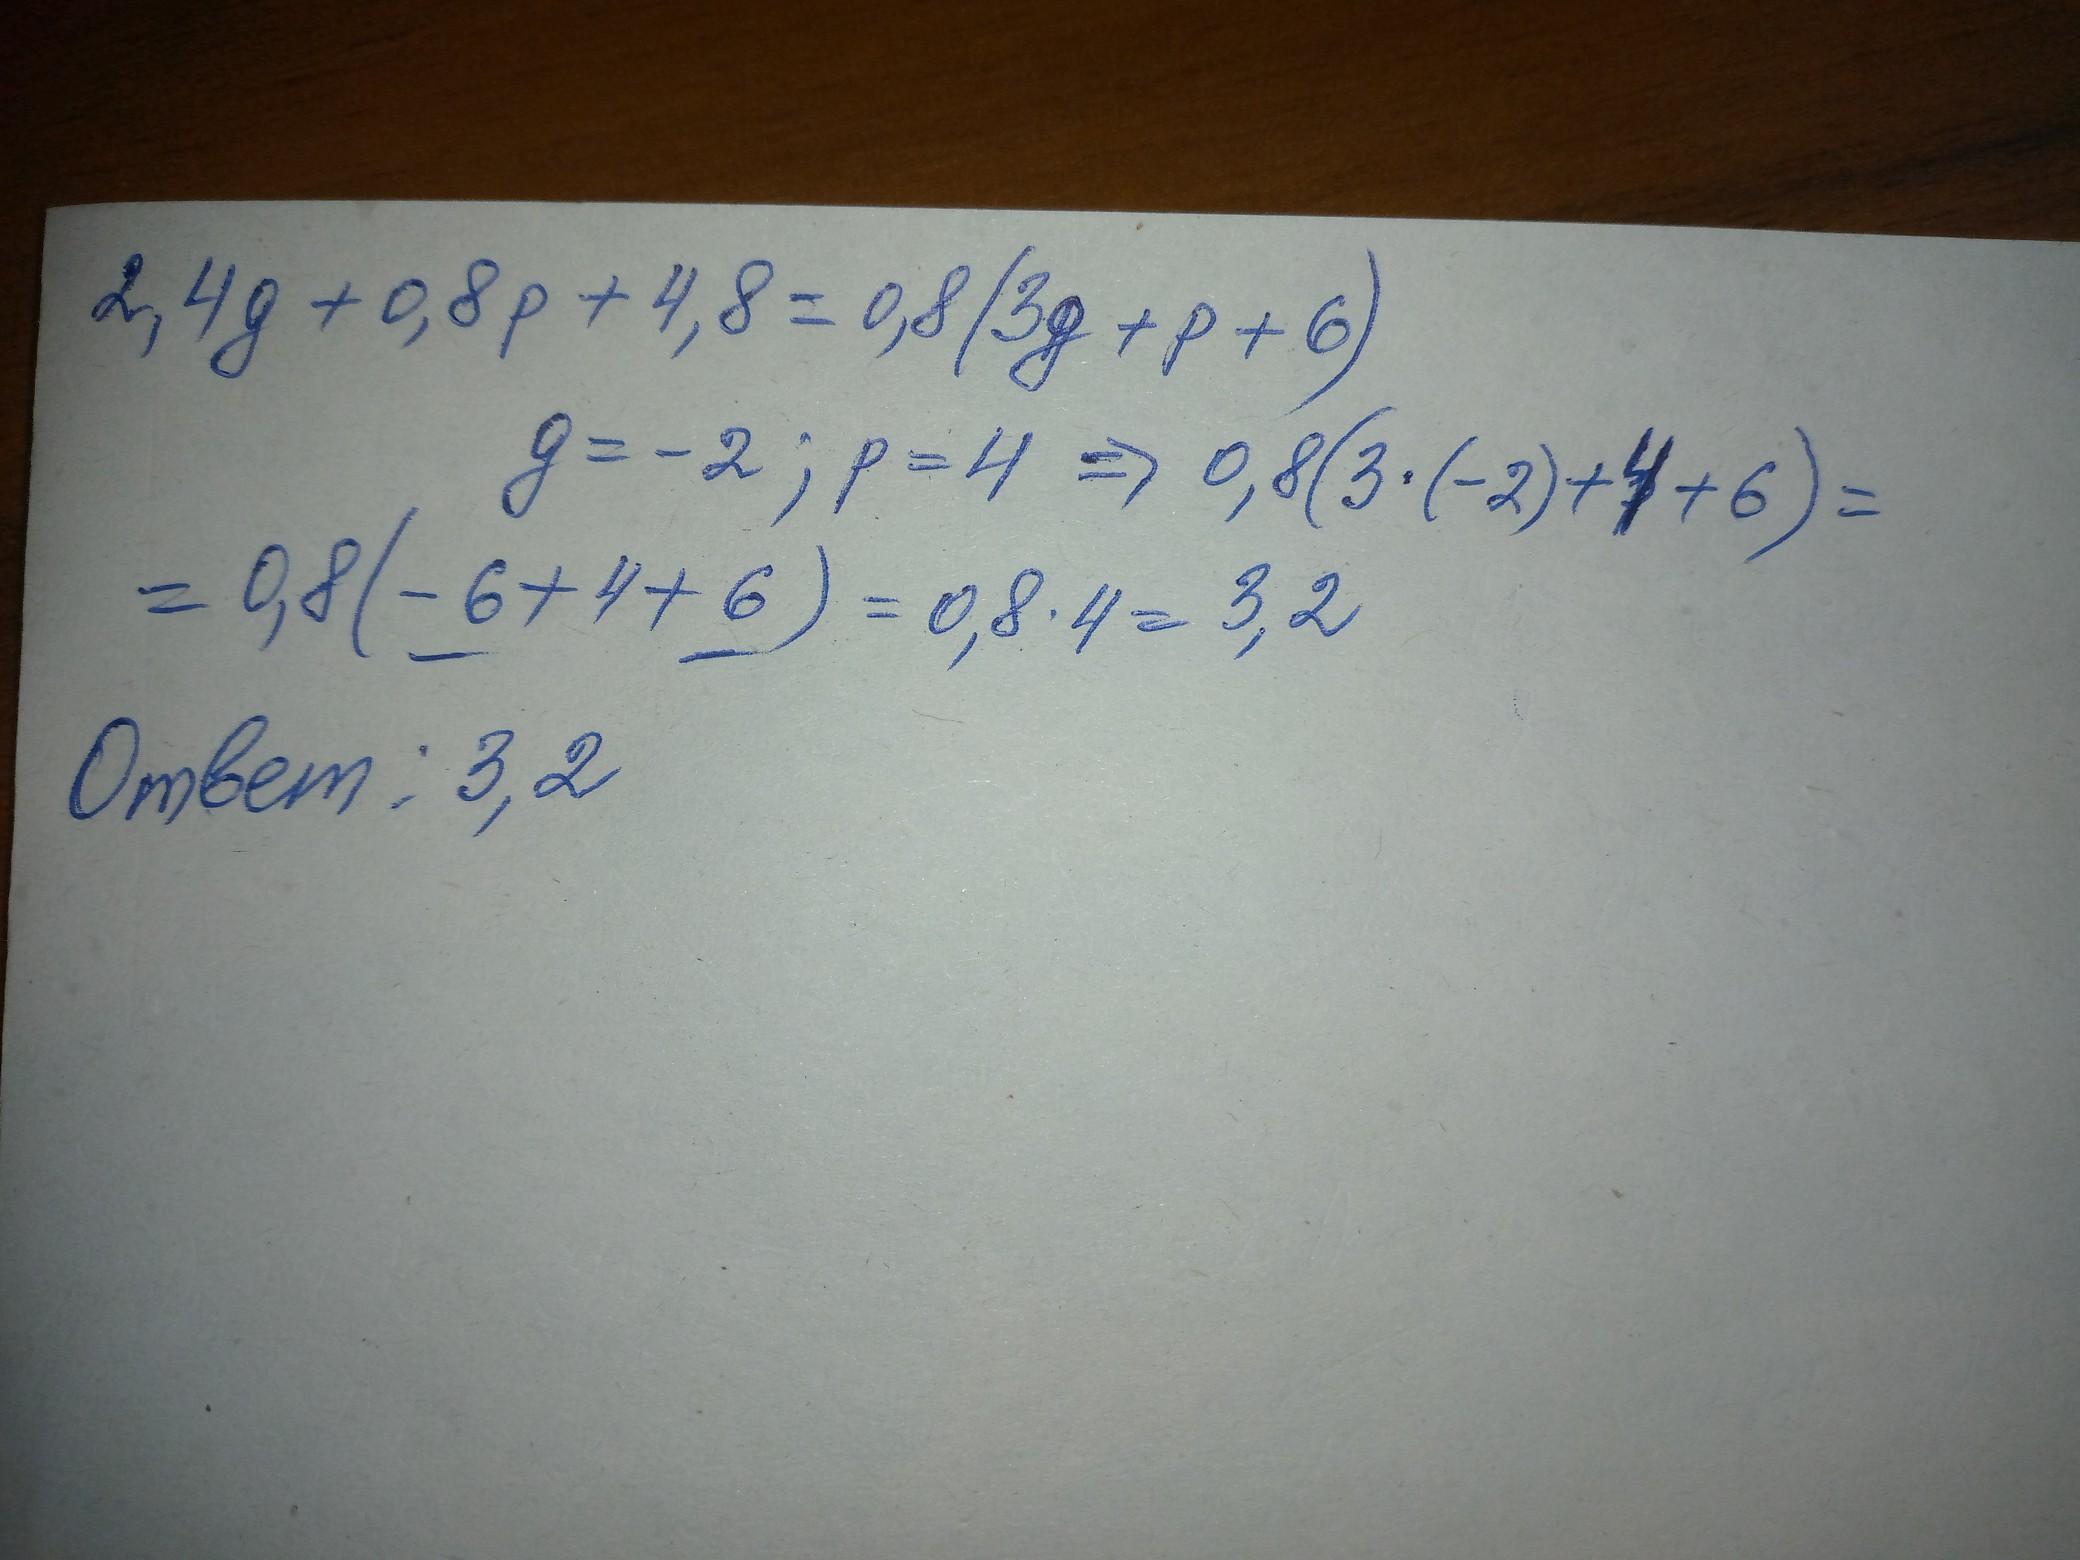 2,4g + 0,8p + 4,8 = 0,8(3g + p + 6)
g = -2; p = 4 => 0,8(3·(-2)+4+6) =
= 0,8(-6+4+6) = 0,8·4 = 3,2
Ответ: 3,2